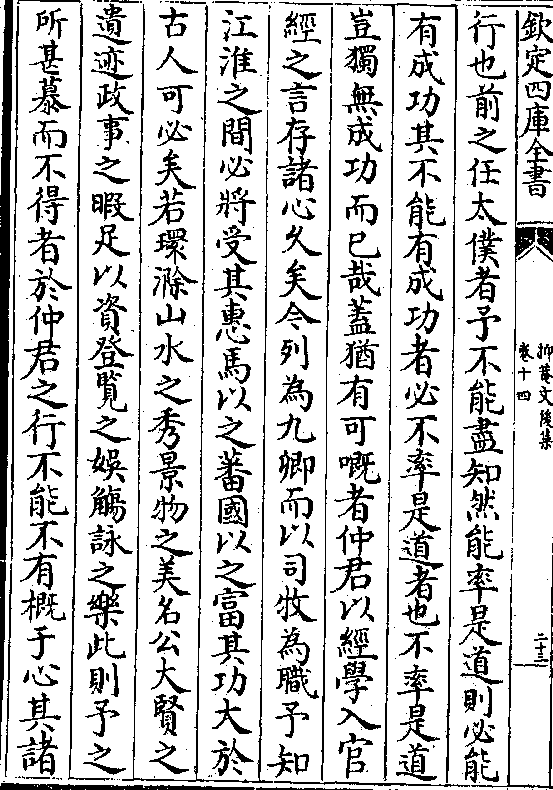 欽定四庫全書
抑菴文後集
卷十四
二十三
行也前之任太僕者予不能盡知然能率是道則必能
有成功其不能有成功者必不率是道者也不率是道
豈獨無成功而已哉蓋猶有可嘅者仲君以經學入官
經之言存諸心久矣今列為九卿而以司牧為職予知
江淮之間必將受其惠馬以之蕃國以之富其功大於
古人可必矣若環滁山水之秀景物之美名公大賢之
遺迹政事之暇足以資登覽之娛觴詠之樂此則予之
所甚慕而不得者於仲君之行不能不有概于心其諸